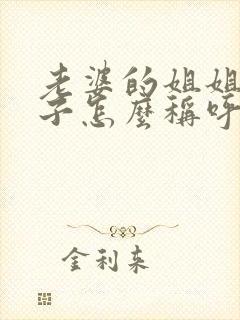 老婆的姐姐
子怎麼稱呼
金利来